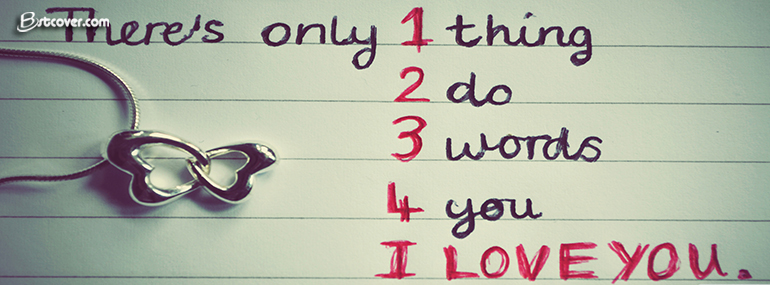 Bstcover.com
There's only 1 thing
2 do
3 words
4 you
I LOVE YOU.